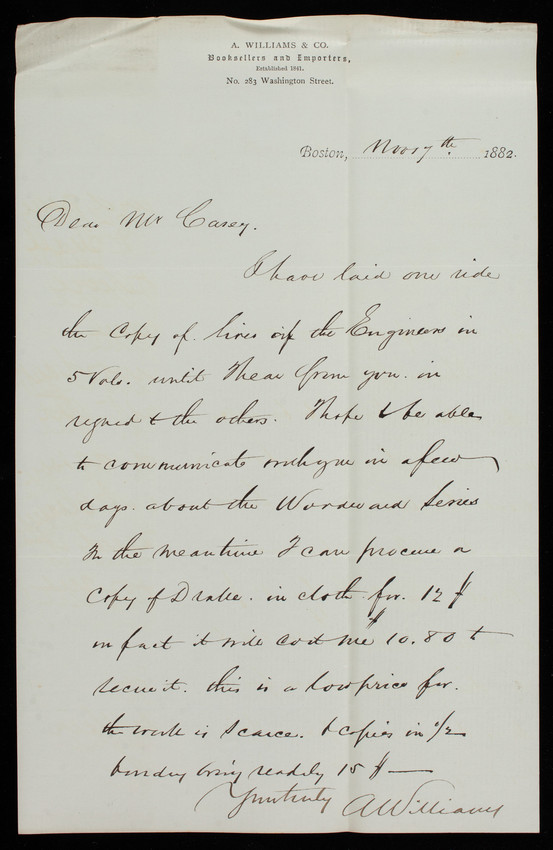 A. WILLIAMS & CO.
Booksellers and Importers,
Established 1841.
No. 283 Washington Street.
Boston, Nov 17th 1882.
Dear Mr Casey.
I have laid one side
the Copy of Lives of the Engineers in
5 Vols. until I hear from you in
regard to the others. I hope to be able
to communicate with you in a few
days about the Series
In the meantime I can procure a
Copy of Drake in cloth for 12 $
in fact it will cost me $ 10.80 to
secure it. this is a low price for
the work is scarce. & copies in 1/2
binding bring readily 15 $
Yours truly AWilliams